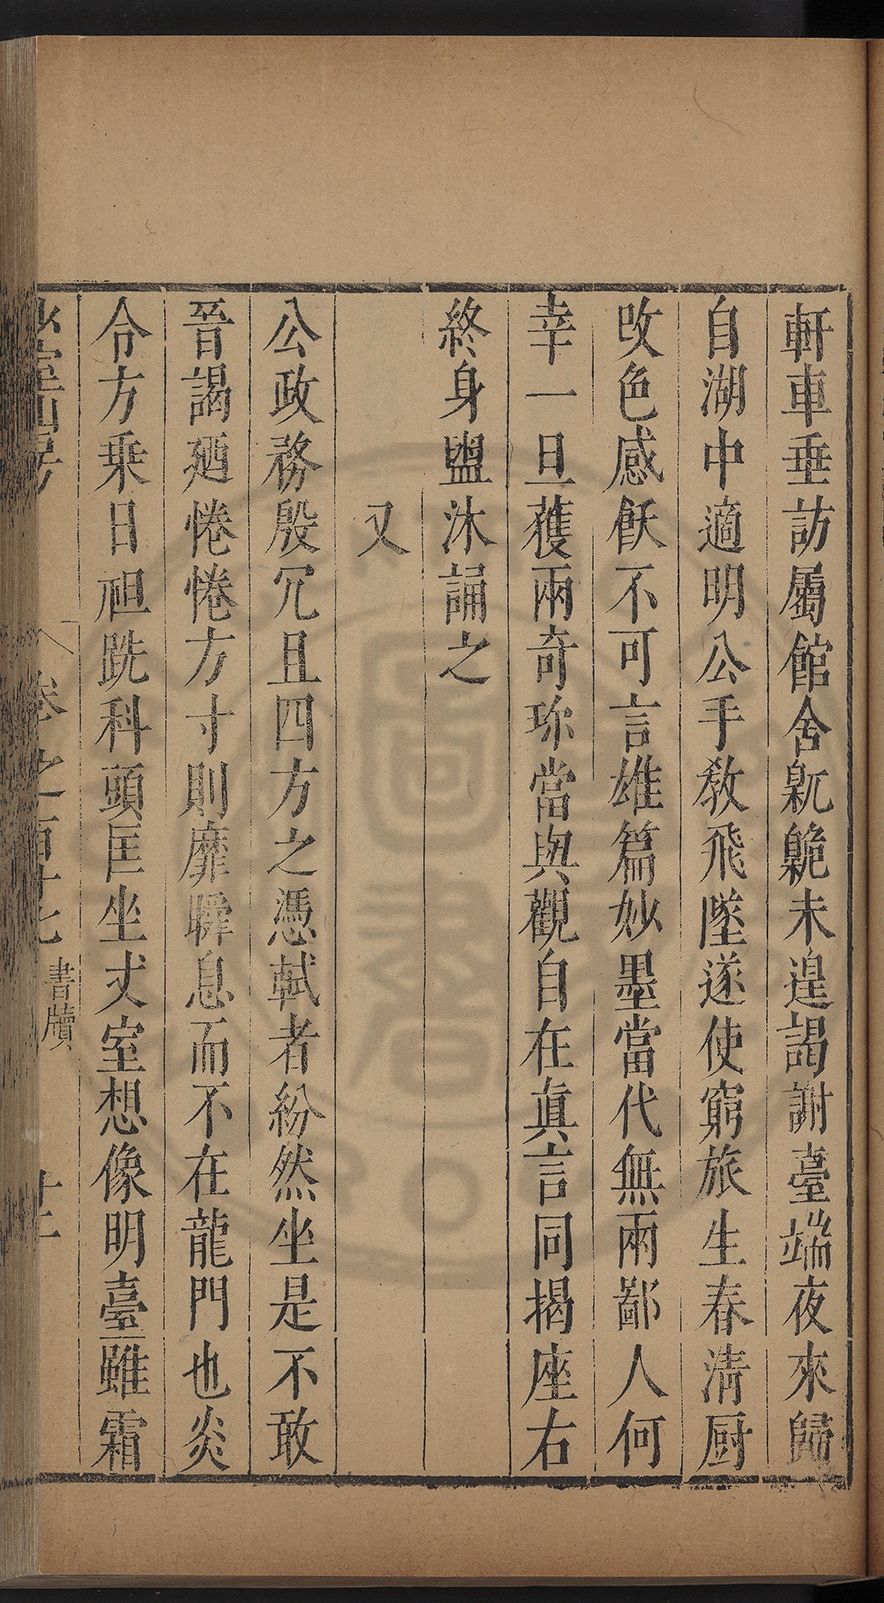 軒車垂訪屬館舍臲卼未遑謁謝臺端夜來歸
自湖中適明公手敎飛墜遂使窮旅生春清厨
改色感飫不可言雄篇妙墨當代無兩鄙人何
幸一旦蒦兩奇珎當與觀自在眞言同揭座右
終身盥沐誦之
又
公政務殷冗且四方之憑軾者紛然坐是不敢
晉謁廼惓惓方寸則靡瞬息而不在龍門也炎
令方乗日袒跣科頭匡坐丈室想像明臺雖霜
少室山房
卷之百十七
書牘